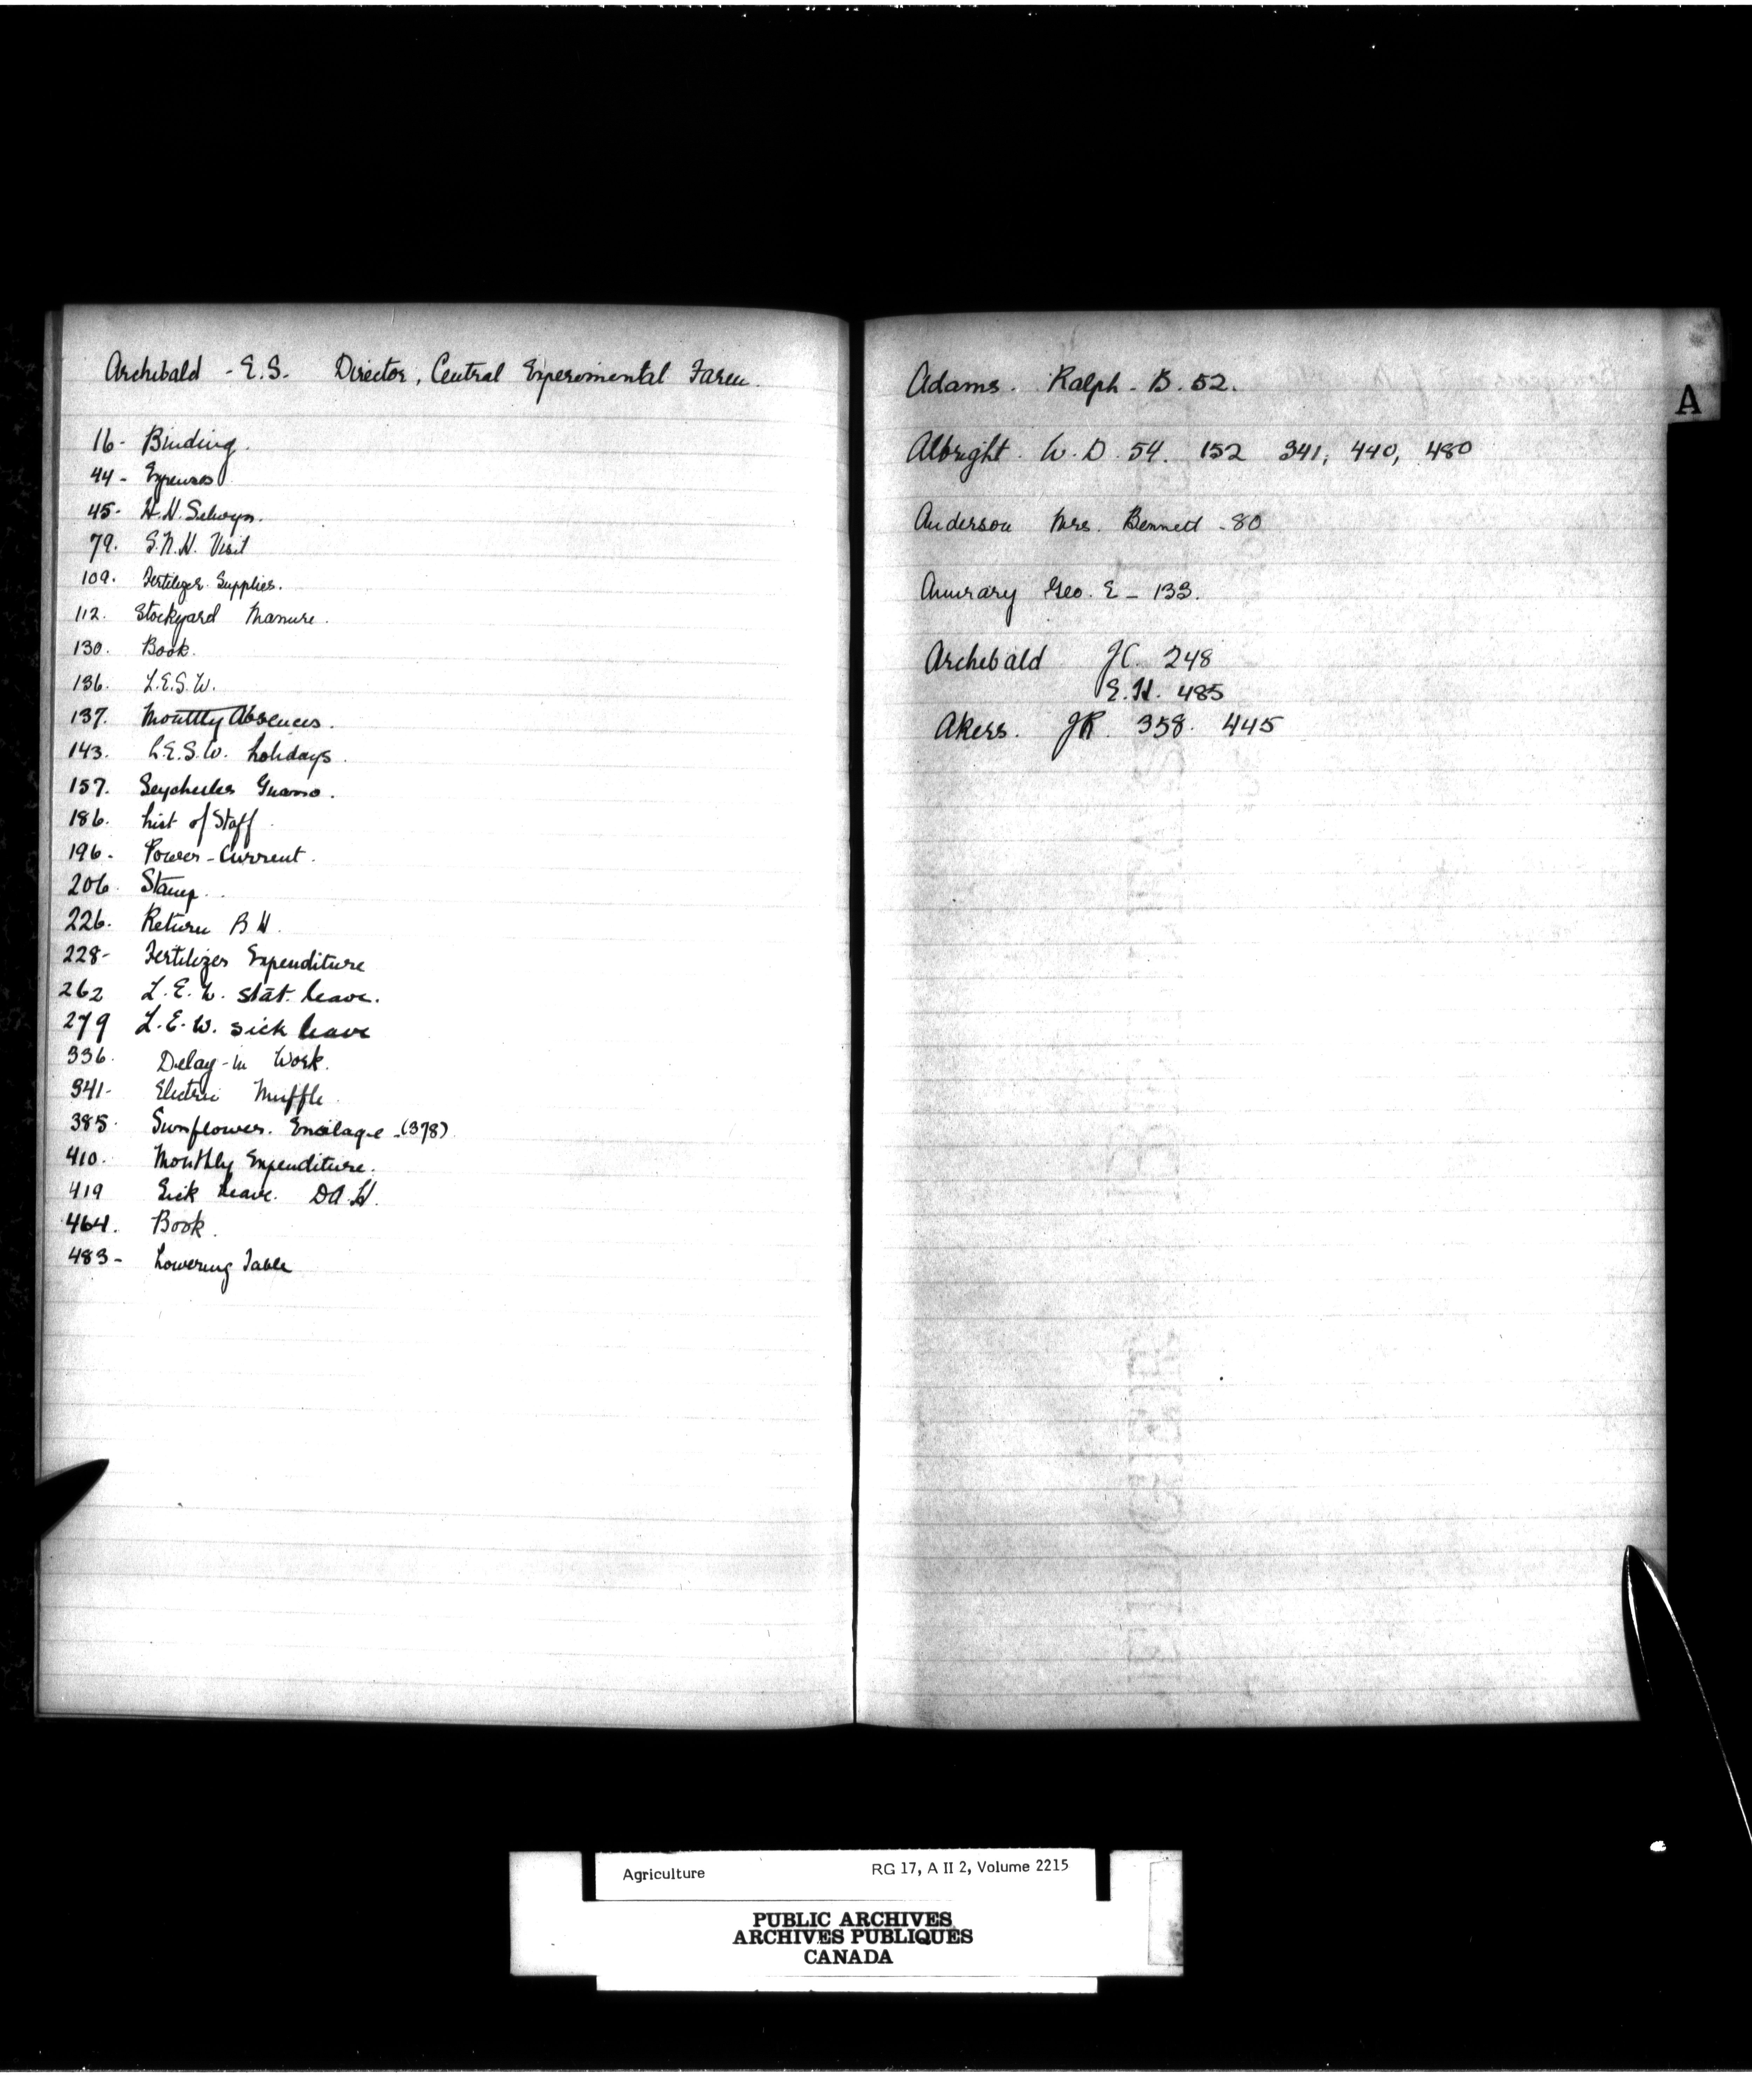 Archibald - E.S. Director, Central Experimental Farm.
16 - Binding.
44 - Expenses
45 - H.N. Selwyn.
79. S.N.H. Visit
109. Fertilizer Supplies.
112. Stockyard Manure.
130. Book.
136. L.E.S.W.
137. Monthly Absences.
143. L.E.S.W. holidays.
157. Seychelles Guano.
186. List of Staff.
196. Power-Current.
206. Stamp.
226. Return B H.
228 - Fertilizer Expenditure
262 L.E.W. stat. leave.
279 L.E.W. sick leave
336. Delay-in Work.
341 - Electric Muffle.
385. Sunflower. Ensilage - (378)
410. Monthly Expenditure.
419 Sick Leave. DA.H.
464. Book.
483 - Lowering Table
A
Adams. Ralph - B. 52.
Albright. W.D. 54. 152 341, 440, 480
Anderson Mrs. Bennett - 80
Geo. E - 133.
Archibald J.C. 248
E.H. 485
Akers. JR. 358. 445
Agriculture RG 17, A II 2, Volume 2215
PUBLIC ARCHIVES
ARCHIVES PUBLIQUES
CANADA